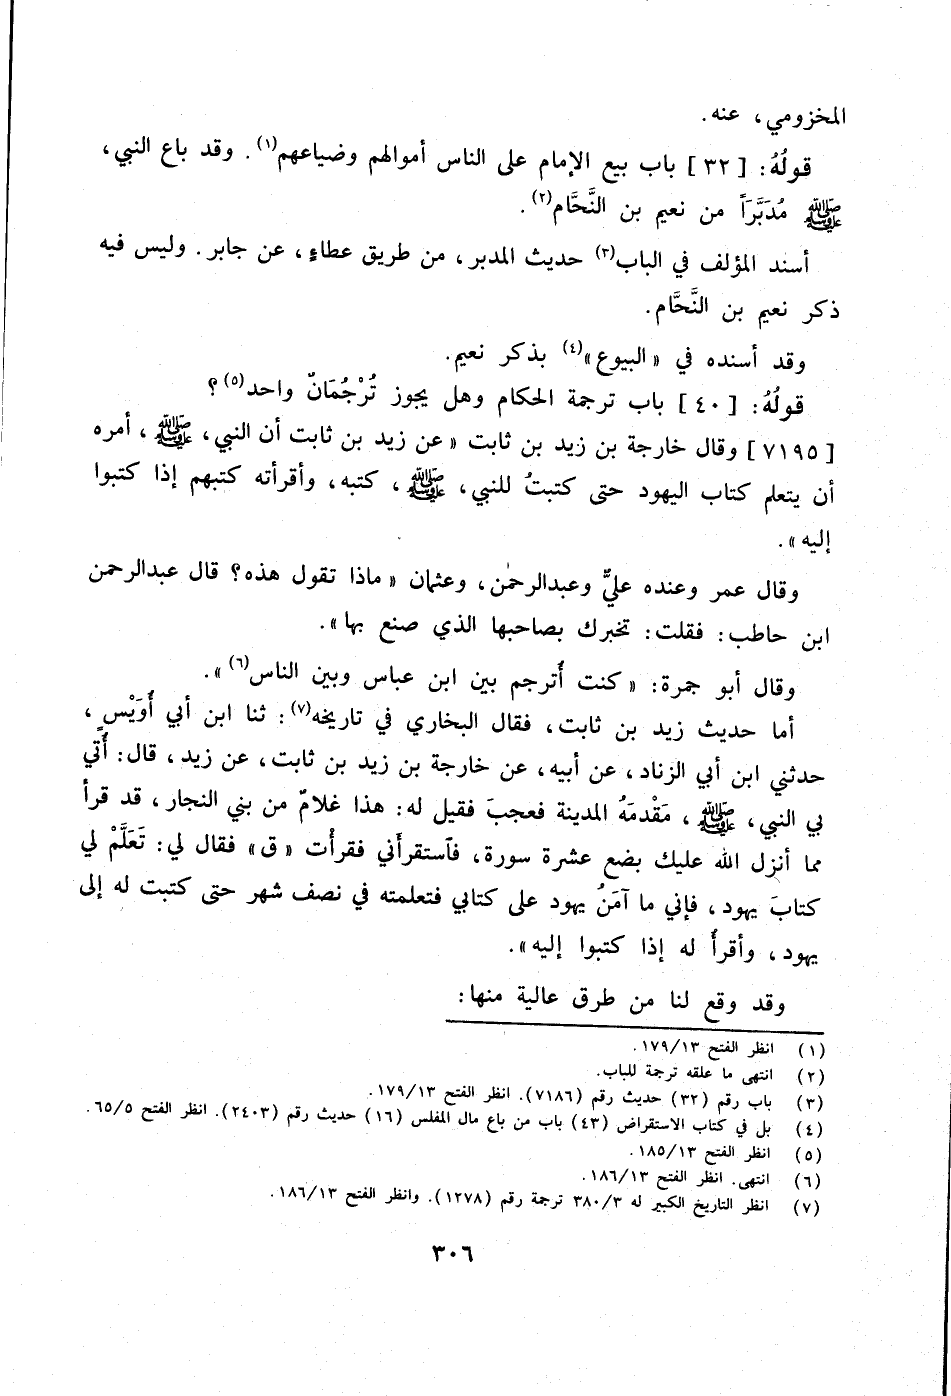 المخزومي، عنه.
قولُهُ: [٣٢] باب بيع الإمام على الناس أموالهم وضياعهم(١). وقد باع النبي،
ﷺ مُدَبَّرَاً من نعيم بن النَّحَّام(٢).
أسند المؤلف في الباب(٣) حديث المدبر، من طريق عطاءٍ، عن جابر. وليس فيه
ذكر نعيم بن النَّحَّام.
وقد أسنده في «البيوع»(٤) بذكر نعيم.
قولُهُ: [٤٠] باب ترجمة الحكام وهل يجوز تُرْجُمَانٌ واحد(٥)؟
[٧١٩٥] وقال خارجة بن زيد بن ثابت «عن زيد بن ثابت أن النبي، ﷺ، أمره
أن يتعلم كتاب اليهود حتى كتبتُ للنبي، ﷺ، كتبه، وأقرأته كتبهم إذا كتبوا
إليه».
وقال عمر وعنده عليٌّ وعبدالرحمٰن، وعثمان «ماذا تقول هذه؟ قال عبدالرحمن
ابن حاطب: فقلت: تخبرك بصاحبها الذي صنع بها».
وقال أبو جمرة: «كنت أُترجم بين ابن عباس وبين الناس(٦)».
أما حديث زيد بن ثابت، فقال البخاري في تاريخه(٧): ثنا ابن أبي أُوَيْسٍ،
حدثني ابن أبي الزناد، عن أبيه، عن خارجة بن زيد بن ثابت، عن زيد، قال: أُتي
بي النبي، ﷺ، مَقْدمَهُ المدينة فعجبَ فقيل له: هذا غلامٌ من بني النجار، قد قرأ
مما أنزل الله عليك بضع عشرة سورة، فٱستقرأَني فقرأْت «ق» فقال لي: تَعَلَّمْ لي
كتابَ يهود، فإني ما آمَنُ يهود على كتابي فتعلمته في نصف شهر حتى كتبت له إلى
يهود، وأقرأُ له إذا كتبوا إليه».
وقد وقع لنا من طرق عالية منها:
(١) انظر الفتح ١٧٩/١٣.
(٢) انتهى ما علقه ترجمة للباب.
(٣) باب رقم (٣٢) حديث رقم (٧١٨٦). انظر الفتح ١٧٩/١٣.
(٤) بل في كتاب الاستقراض (٤٣) باب من باع مال المفلس (١٦) حديث رقم (٢٤٠٣). انظر الفتح ٦٥/٥.
(٥) انظر الفتح ١٨٥/١٣.
(٦) انتهى. انظر الفتح ١٨٦/١٣.
(٧) انظر التاريخ الكبير له ٣٨٠/٣ ترجمة رقم (١٢٧٨). وانظر الفتح ١٨٦/١٣.
٣٠٦